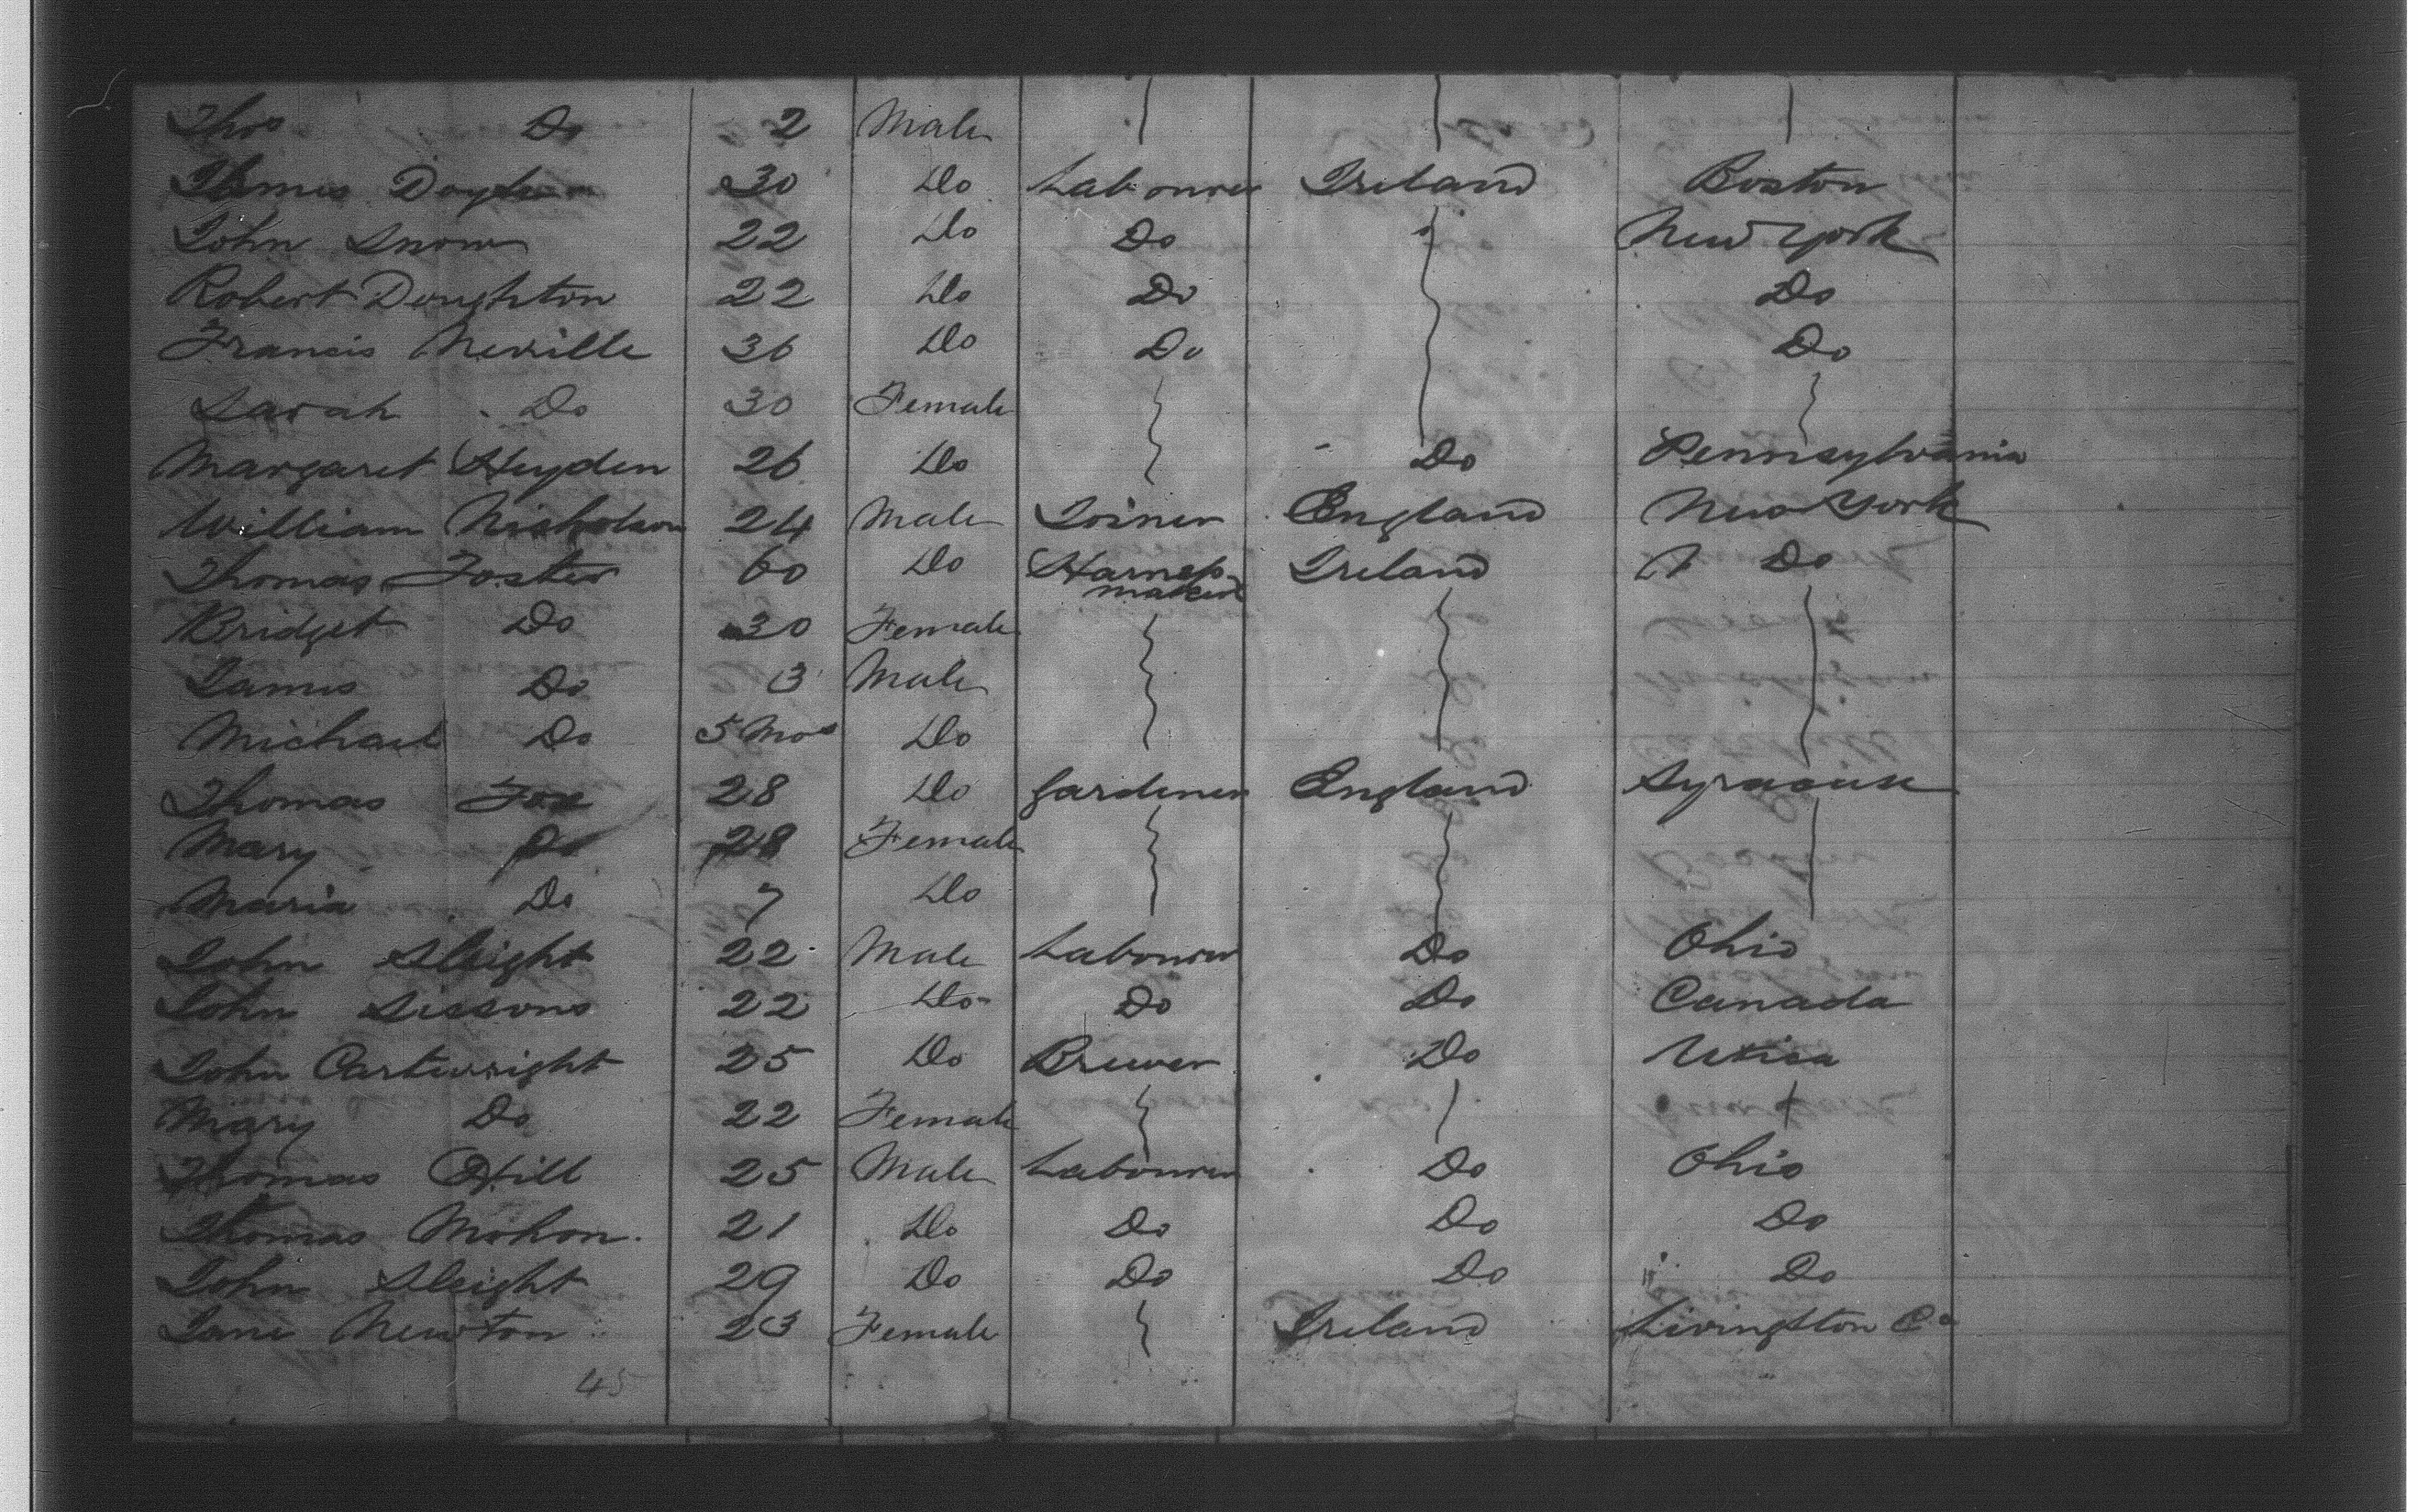 Thos Do 2 Male
James Doyle 30 Do Labourer Ireland Boston
John Snow 22 Do Do New York
Robert Doughton 22 Do Do Do
Francis Neville 36 Do Do Do
Sarah Do 30 Female
Margaret Heyden 26 Do Do Pennsylvania
William Nicholson 24 Male Joiner England New York
Thomas Foster 60 Do Harness maker Ireland Do
Bridget Do 30 Female
James Do 3 Male
Michael Do 5 Mos Do
Thomas Fox 28 Do Gardener England Syracuse
Mary Do 28 Female
Maria Do 7 Do
John Sleight 22 Male Labourer Do Ohio
John Sissons 22 Do Do Do Canada
John Cartwright 25 Do Brewer Do Utica
Mary Do 22 Female
Thomas Hill 25 Male Labourer Do Ohio
Thomas Mohon. 21 Do Do Do Do
John Sleight 29 Do Do Do Do
Jane Newton 23 Female Ireland Livingston Co
45